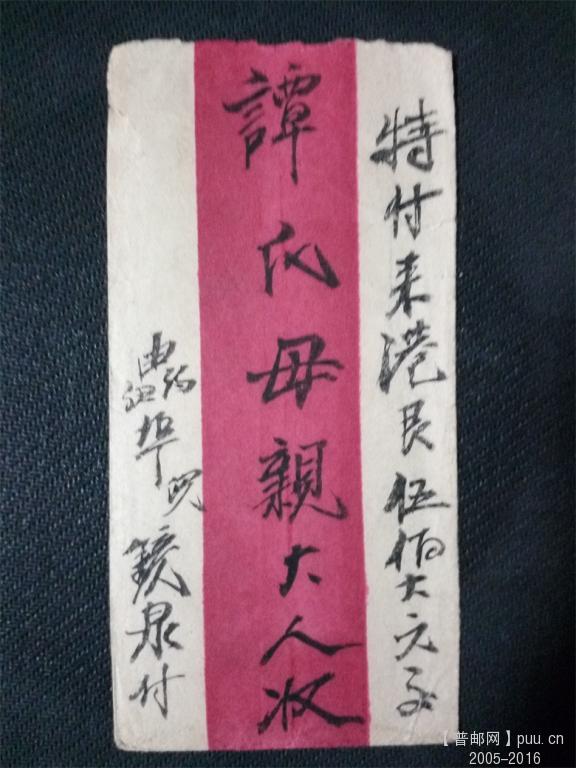 特付来港艮伍佰大元正
譚氏母親大人收
由紐約埠 鏡泉付
【普邮网】puu.cn
2005-2016